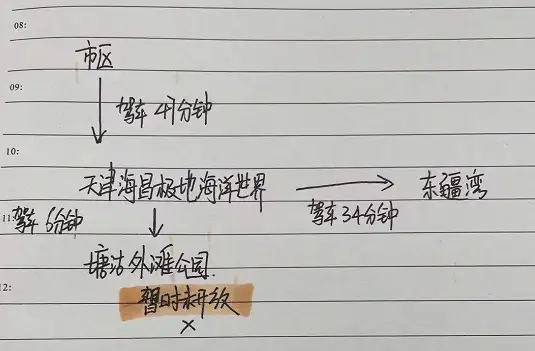 08:
市区
09:
驾车 47分钟
10:
天津海昌极地海洋世界
东疆湾
11:
驾车 6分钟
驾车 34分钟
塘沽外滩公园
12:
暂时未开放
×